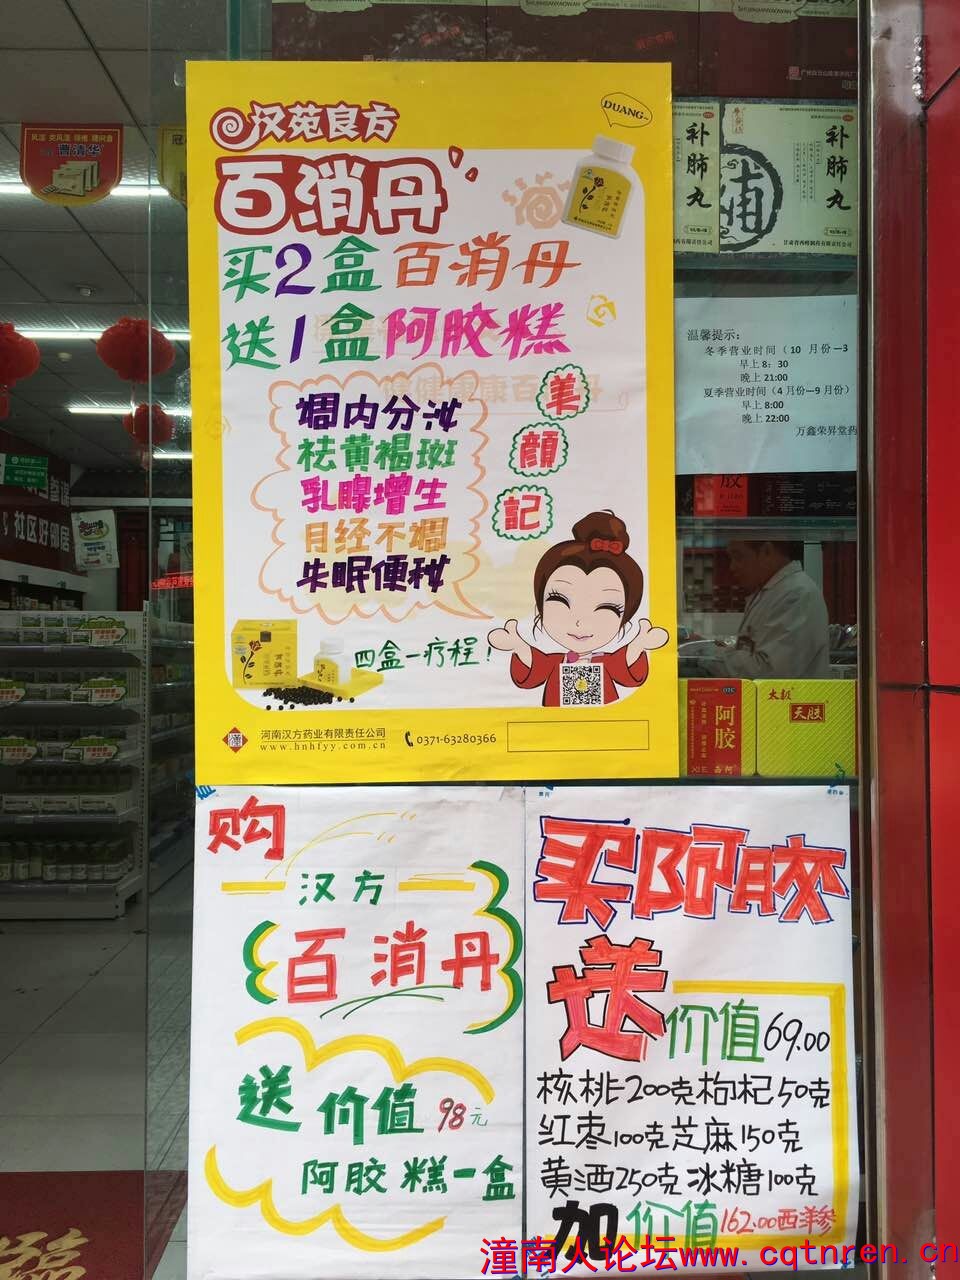 汉苑良方
DUANG~
百消丹
买2盒百消丹
送1盒阿胶糕
调内分泌
祛黄褐斑
乳腺增生
月经不调
失眠便秘
美
颜
記
四盒一疗程!
河南汉方药业有限责任公司
www.hnhfyy.com.cn
0371-63280366
曹清华
补肺丸
补肺丸
温馨提示:
冬季营业时间（10 月份—3
早上8：30
晚上 21:00
夏季营业时间（4 月份—9 月份）
早上 8:00
晚上 22:00
万鑫荣昇堂药
社区好邻居
OTC
阿胶
太极
天胶
购
汉方
百消丹
送价值98元
阿胶糕一盒
买阿胶
送价值69.00
核桃200克枸杞50克
红枣100克芝麻150克
黄酒250克冰糖100克
加价值162.00西洋参
潼南人论坛www.cqtnren.cn